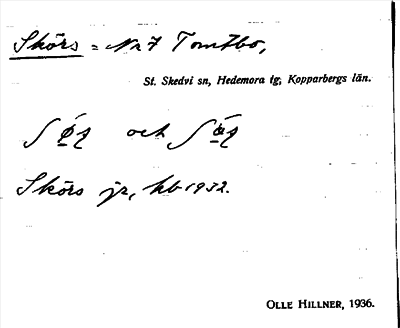 Skörs = Nr 7 Tomtbo,
St. Skedvi sn, Hedemora tg, Kopparbergs län.
och
Skörs jr, kb 1932.
OLLE HILLNER, 1936.